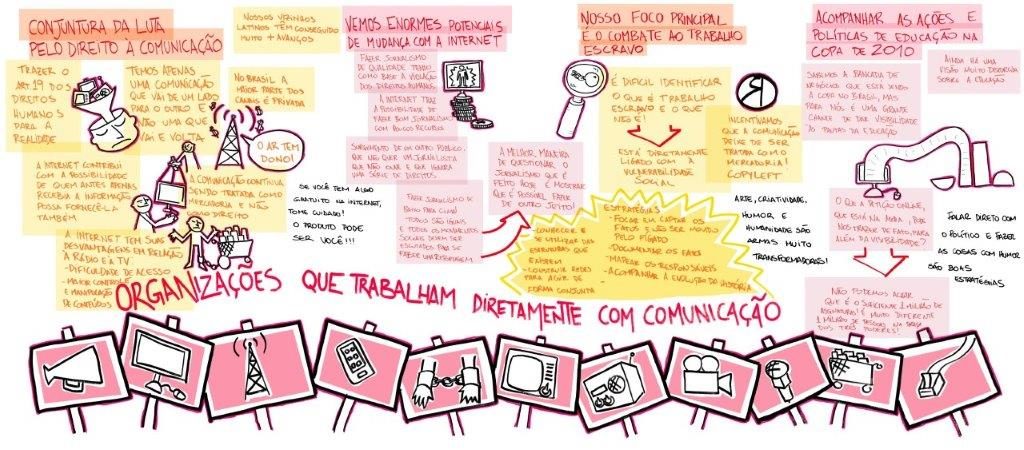 CONJUNTURA DA LUTA
PELO DIREITO À COMUNICAÇÃO
TRAZER O
ART.19 DOS
DIREITOS
HUMANOS
PARA A
REALIDADE
TEMOS APENAS
UMA COMUNICAÇÃO
QUE VAI DE UM LADO
PARA O OUTRO E
NÃO UMA QUE
VAI E VOLTA
NOSSOS VIZINHOS
LATINOS TÊM CONSEGUIDO
MUITO + AVANÇOS
NO BRASIL A
MAIOR PARTE DOS
CANAIS É PRIVADA
O AR TEM
DONO!
A INTERNET CONTRIBUI
COM A POSSIBILIDADE
DE QUEM ANTES APENAS
RECEBIA A INFORMAÇÃO
POSSA FORNECÊ-LA
TAMBÉM
A COMUNICAÇÃO CONTINUA
SENDO TRATADA COMO
MERCADORIA E NÃO
COMO DIREITO
A INTERNET TEM SUAS
DESVANTAGENS EM RELAÇÃO
À RÁDIO E À TV
- DIFICULDADE DE ACESSO
- MAIOR CONTROLE
E MANIPULAÇÃO
DE CONTEÚDOS
SE VOCÊ TEM ALGO
GRATUITO NA INTERNET,
TOME CUIDADO!
O PRODUTO PODE
SER VOCÊ!!!
VEMOS ENORMES POTENCIAIS
DE MUDANÇA COM A INTERNET
FAZER JORNALISMO
DE QUALIDADE TENDO
COMO BASE A VIOLAÇÃO
DOS DIREITOS HUMANOS
A INTERNET TRAZ
A POSSIBILIDADE DE
FAZER BOM JORNALISMO
COM POUCOS RECURSOS
SURGIMENTO DE UM OUTRO PÚBLICO,
QUE NÃO QUER UM JORNALISTA
QUE NÃO OUVE E QUE IGNORA
UMA SÉRIE DE DIREITOS
FAZER JORNALISMO DE
BAIXO PARA CIMA!
TODOS SÃO IGUAIS
E TODOS OS MOVIMENTOS
SOCIAIS DEVEM SER
ESCUTADOS PARA SE
FAZER UMA REPORTAGEM
A MELHOR MANEIRA
DE QUESTIONAR O
JORNALISMO QUE É
FEITO HOJE É MOSTRAR
QUE É POSSÍVEL FAZER
DE OUTRO JEITO!
NOSSO FOCO PRINCIPAL
É O COMBATE AO TRABALHO
ESCRAVO
É DIFICIL IDENTIFICAR
O QUE É TRABALHO
ESCRAVO E O QUE
NÃO É!
ESTÁ DIRETAMENTE
LIGADO COM A
VULNERABILIDADE
SOCIAL
INCENTIVAMOS
QUE A COMUNICAÇÃO
DEIXE DE SER
TRATADA COMO
MERCADORIA!
COPYLEFT
ESTRATÉGIAS
- CONHECER E
SE UTILIZAR DAS
ESTRUTURAS QUE
EXISTEM
- CONSTRUIR REDES
PARA AGIR DE
FORMA CONJUNTA
- FOCAR EM CAPTAR OS
FATOS E NÃO SER MOVIDO
PELO FÍGADO
- DOCUMENTAR OS FATOS
- MAPEAR OS RESPONSÁVEIS
- ACOMPANHAR A EVOLUÇÃO DA HISTÓRIA
ARTE, CRIATIVIDADE,
HUMOR E
HUMANIDADE SÃO
ARMAS MUITO
TRANSFORMADORAS!
ACOMPANHAR AS AÇÕES E
POLÍTICAS DE EDUCAÇÃO NA
COPA DE 2010
SABEMOS A BANCADA DE
NEGÓCIOS QUE ESTÁ SENDO
A COPA NO BRASIL, MAS
PARA NÓS É UMA GRANDE
CHANCE DE DAR VISIBILIDADE
ÀS PAUTAS DA EDUCAÇÃO
AINDA HÁ UMA
VISÃO MUITO DISTORCIDA
SOBRE A EDUCAÇÃO
O QUE A PETIÇÃO ONLINE,
QUE ESTÁ NA MODA, PODE
NOS TRAZER DE FATO, PARA
ALÉM DA VISIBILIDADE?
FALAR DIRETO COM
O POLÍTICO E FAZER
AS COISAS COM HUMOR
SÃO BOAS
ESTRATÉGIAS
NÃO PODEMOS ACHAR
QUE É O SUFICIENTE 1 MILHÃO DE
ASSINATURAS! É MUITO DIFERENTE
1 MILHÃO DE PESSOAS NA PRAÇA
DOS TRÊS PODERES!
ORGANIZAÇÕES QUE TRABALHAM DIRETAMENTE COM COMUNICAÇÃO